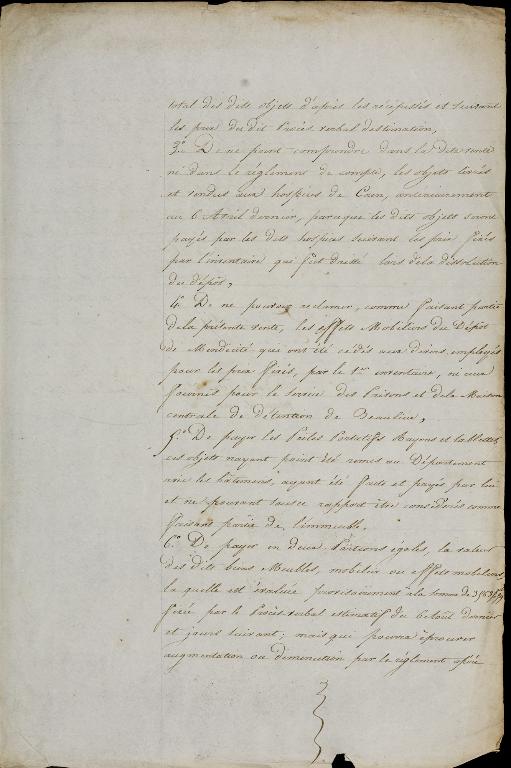 total des dits objets d'après les récépissés et suivant
les prix du dit Procès verbal d'estimation,
3.º De ne point comprendre dans la dite vente
ni dans le réglement de compte, les objets livrés
et vendus aux hospices de Caen, antérieurement
au 6 Avril dernier, parceque les dits objets seront
payés par les dits hospices suivant les prix fixés
par l'inventaire qui fut dressé lors de la dissolution
du dépôt,
4.º De ne pouvoir réclamer, comme faisant partie
de la présente vente, les effets Mobiliers du Dépôt
de Mendicité qui ont été cédés aux divers employés
pour les prix fixés, par le 1er inventaire, ni ceux
fournis pour le service des Prisons et de la Maison
centrale de détention de Beaulieu,
5.º De payer les Poëles Portatifs Rayons et Tablettes,
ces objets n'ayant point été remis au Département
avec les bâtimens, ayant été faits et payés par lui
et ne pouvant sous ce rapport être considérés comme
faisant partie de l'immeuble.
6.º De payer en deux Portions égales, la valeur
des dits biens Meubles, mobilier ou effets mobiliers,
la quelle est évaluée provisoirement à la somme de
fixée par le Procès-verbal estimatif du 6 Août dernier
et jours suivant; mais qui pourra éprouver
augmentation ou diminution par le réglement opéré